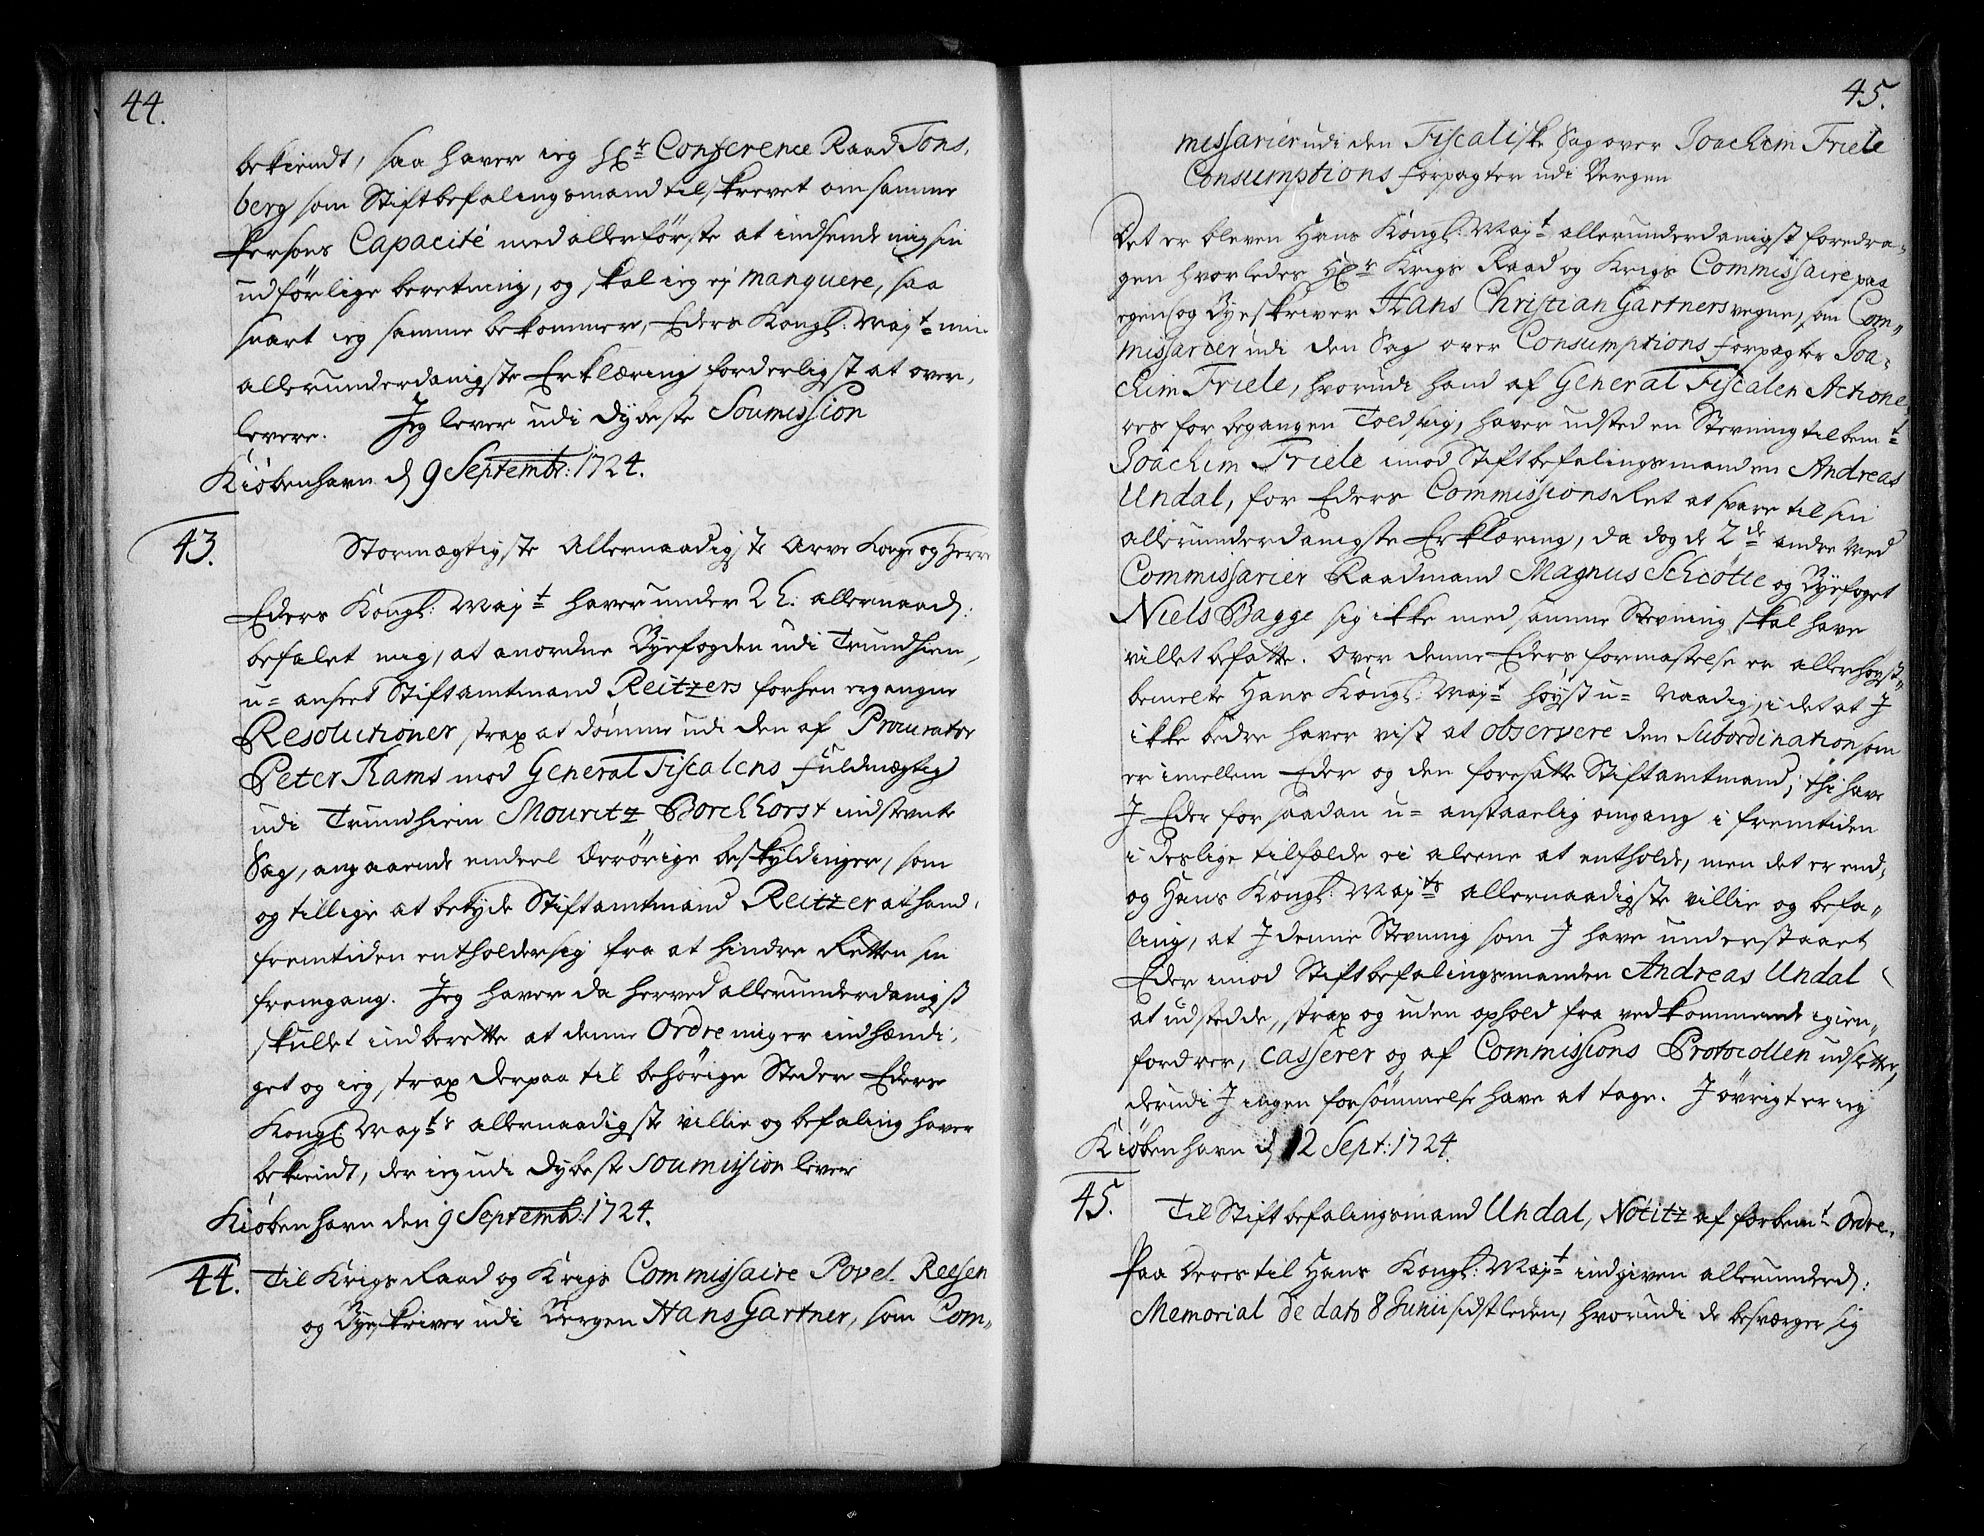 44.
bekiendt, saa haver ieg Hr. Conference Raad Tons,
berg som Stiftbefalingsmand tilskrevet om samme
Persons Capacité med allerförste at indsende mig sin
udförlige beretning, og skal ieg ej manquere, saa
snart ieg samme bekommer, Eders Kongl: Mayt. min
allerunderdanigste Erklæring forderligst at over,
levere. Jeg lever udi dybeste Soumission
Kiöbenhavn d 9 Septembr: 1724.
43.
Stormægtigste Allernaadigste Arve Konge og Herre
Eders Kongl: Mayt. haver under 2 h. allernaad:
befalet mig, at anordne Byefogden udi Trundhiem,
u= anseet Stiftamtmand Reitzers forhen ergangne
Resolutioner, strax at dömme udi den af Procurator
Peter Rams mod General Fiscalens fuldmægtig
udi Trundhiem Mouritz Borchhorst indstevnte
Sag, angaaende endeel Ærrörige beskyldinger, som
og tillige at betyde Stiftamtmand Reitzer at hand,
fremtiden entholder sig fra at hindre Retten sin
fremgang. Jeg haver da herved allerunderdanigst
skullet indberette at denne Ordre mig er indhændi,
get og ieg, strax derpaa til behörige Steder Eders
Kongl Mayts allernaadigste villie og befaling haver
bekiendt, der ieg udi dybeste soumission lever
Kiöbenhavn den 9 Septemb: 1724.
44. Til Krigs Raad og Krigs Commissaire Povel Reesen
og Byeskriver udi Bergen Hans Gartner, som Com„
45.
missarier udi den Fiscaliske Sag over Joachim Friele
Consumptions forpagter udi Bergen
Det er bleven Hans Kongl: Mayt. allerunderdanigst foredra„
gen hvorledes Hr. Krigs Raad og Krigs Commissaire paa
egen og Byeskriver Hans Christian Gartners vegne, som Com„
missarier udi den Sag over Consumptions forpagter Joa„
chim Friele, hvorudi hand af General Fiscalen Actione„
res for begangen Toldsvig, haver udsted en Stevning til bemt.
Joachim Friele imod Stiftbefalingsmanden Andreas
Undal, for Eders Commissions Ret at svare til sin
allerunderdanigste Erklæring, da dog de 2de andre Med
Commissarier Raadmand Magnus Schiötte og Byefoget
Niels Bagge sig ikke med samme Stevning skal have
villet befatte. Over denne Eders formastelse er allerhöyst„
bemelte Hans Kongl: Mayt. höyst u= Naadig, i det at I
ikke bedre haver vist at observere den Subordination som
er imellem Eder og den foresatte Stiftamtmand; thi have
I Eder for saadan u= anstaarlig omgang i fremtiden
i deslige tilfælde ei aleene at entholde, men det er end,
og Hans Kongl: Mayts allernaadigste villie og befa„
ling, at I denne Stevning som I have understaaet
Eder imod Stiftbefalingsmanden Andreas Undal
at udstedde, strax og uden ophold fra vedkommende igien„
fordrer, casserer og af Commissions Protocollen udsletter,
derudi I ingen forsömmelse have at tage. I övrigt er ieg
Kiöbenhavn d 12 Sept: 1724.
45. Til Stiftbefalingsmand Undal, Notitz af forbemt. Ordre.
Paa Deres til Hans Kongl: Mayt. indgiven allerunderd:
Memorial de dato 8 Junii sidstleden, hvorudi de besværger sig